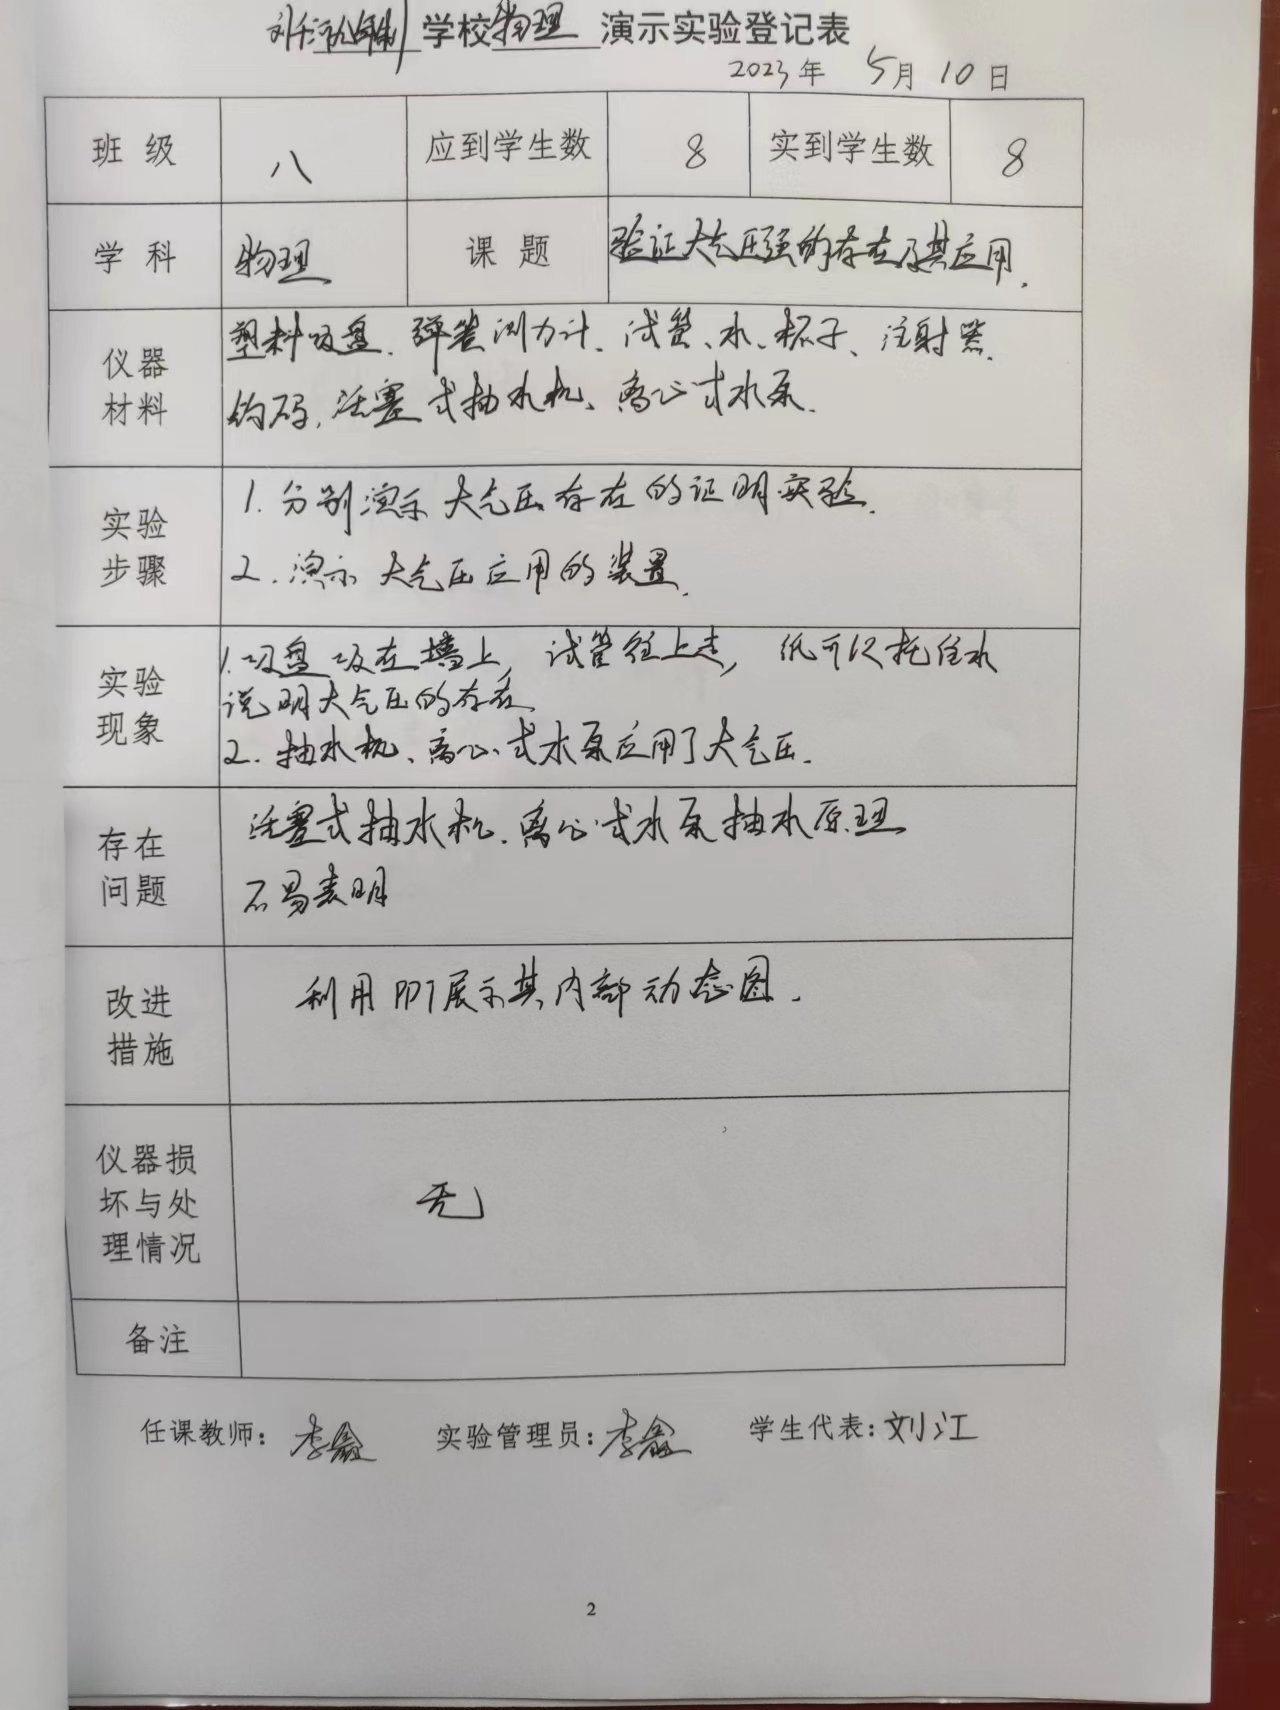 学校物理 演示实验登记表
2023年 5月10日
班 级 八 应到学生数 8 实到学生数 8
学 科 物理 课 题 验证大气压强的存在及其应用.
仪器
材料
塑料吸盘、弹簧测力计、试管、水、杯子、注射器、
钩码、活塞式抽水机、离心式水泵.
实验
步骤
1. 分别演示大气压存在的证明实验.
2. 演示大气压应用的装置.
实验
现象
1.吸盘吸在墙上, 试管往上走, 纸可以托住水
说明大气压的存在
2. 抽水机、离心式水泵应用了大气压.
存在
问题
活塞式抽水机、离心式水泵抽水原理
不易表明
改进
措施
利用PPT展示其内部动态图.
仪器损
坏与处
理情况
无
备注
任课教师: 李鑫 实验管理员: 李鑫 学生代表: 刘江
2